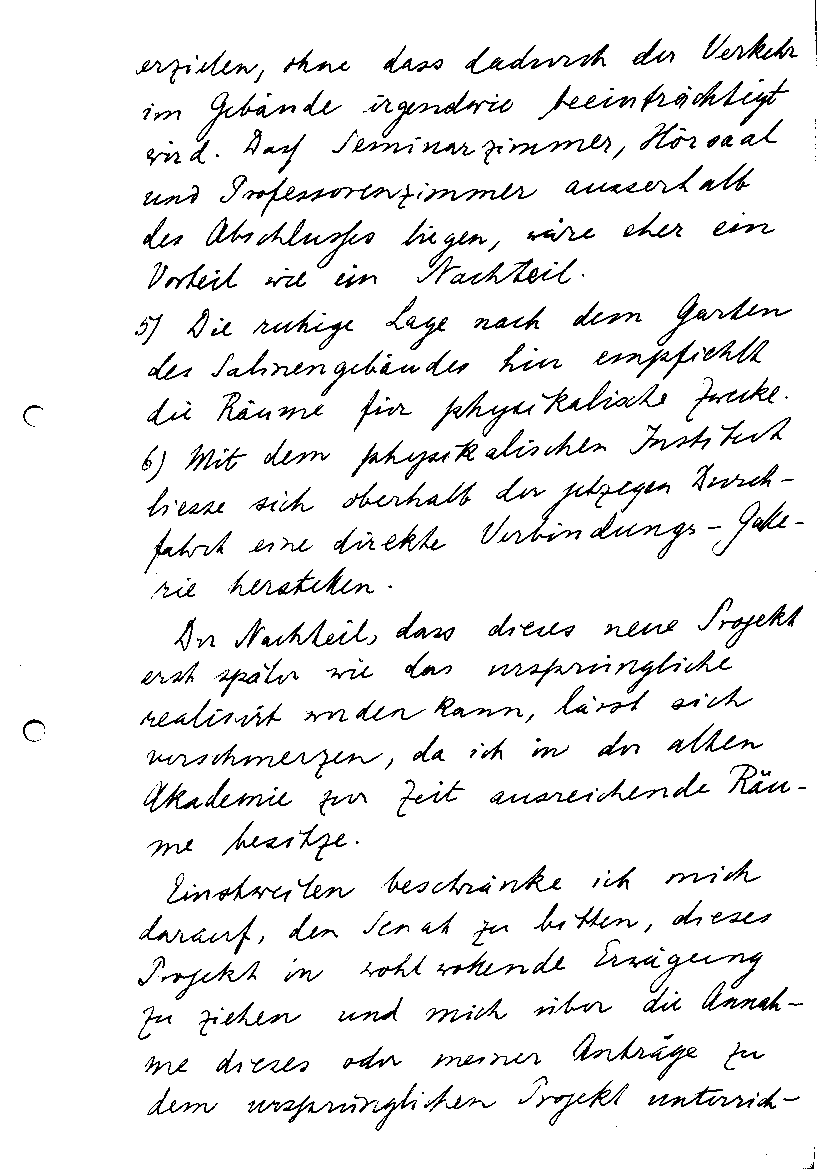 erzielen, ohne dass dadurch der Verkehr
im Gebäude irgendwie beeinträchtigt
wird. Dass Seminarzimmer, Hörsaal
und Professorenzimmer ausserhalb
des Abschlusses liegen, wäre eher ein
Vorteil wie ein Nachteil.
5) Die ruhige Lage nach dem Garten
des Salinengebäudes hin empfiehlt
die Räume für physikalische Zwecke.
6) Mit dem physikalischen Institut
liesse sich oberhalb der jetzigen Durch-
fahrt eine direkte Verbindungs-Galle-
rie herstellen.
Der Nachteil, dass dieses neue Projekt
erst später wie das ursprüngliche
realisirt werden kann, lässt sich
verschmerzen, da ich in der alten
Akademie zur Zeit ausreichende Räu-
me besitze.
Einstweilen beschränke ich mich
darauf, den Senat zu bitten, dieses
Projekt in wohlwollende Erwägung
zu ziehen und mich über die Annah-
me dieses oder meiner Anträge zu
dem ursprünglichen Projekt unterrich-